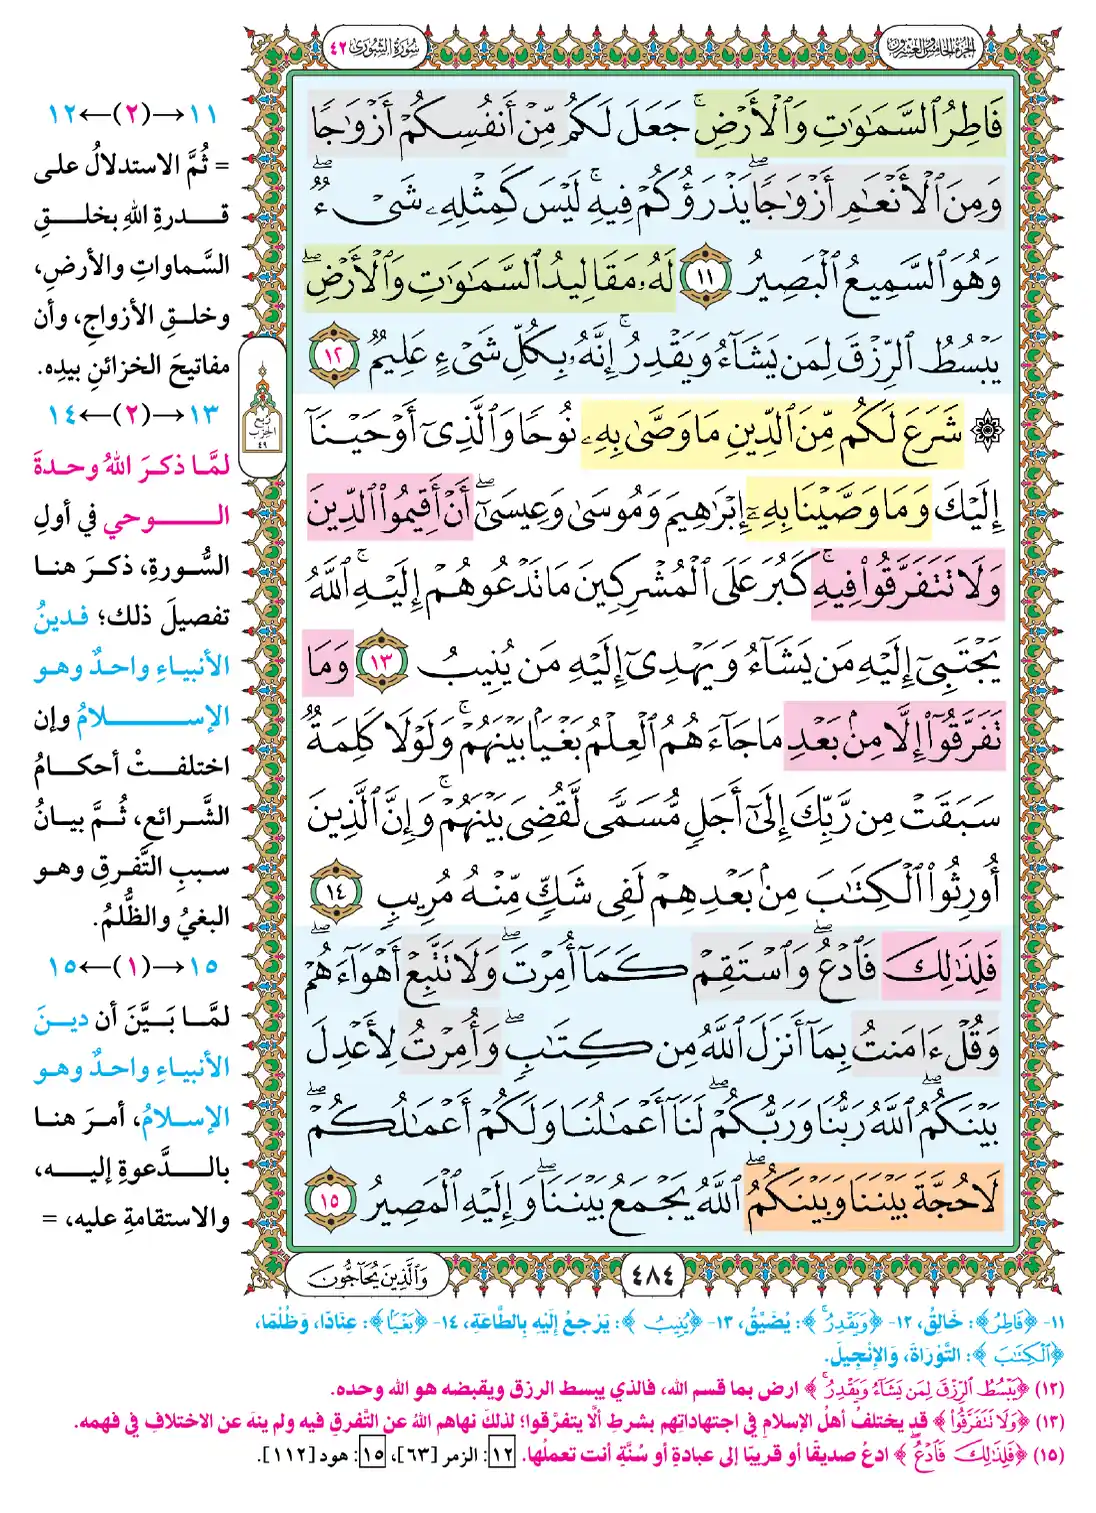 الجزء الخامس والعشرون
سورة الشورى ٤٢
فَاطِرُ السَّمَاوَاتِ وَالْأَرْضِ ۚ جَعَلَ لَكُم مِّنْ أَنفُسِكُمْ أَزْوَاجًا
وَمِنَ الْأَنْعَامِ أَزْوَاجًا ۖ يَذْرَؤُكُمْ فِيهِ ۚ لَيْسَ كَمِثْلِهِ شَيْءٌ ۖ
وَهُوَ السَّمِيعُ الْبَصِيرُ ١١ لَهُ مَقَالِيدُ السَّمَاوَاتِ وَالْأَرْضِ ۖ
يَبْسُطُ الرِّزْقَ لِمَن يَشَاءُ وَيَقْدِرُ ۚ إِنَّهُ بِكُلِّ شَيْءٍ عَلِيمٌ ١٢
۞ شَرَعَ لَكُم مِّنَ الدِّينِ مَا وَصَّىٰ بِهِ نُوحًا وَالَّذِي أَوْحَيْنَا
إِلَيْكَ وَمَا وَصَّيْنَا بِهِ إِبْرَاهِيمَ وَمُوسَىٰ وَعِيسَىٰ ۖ أَنْ أَقِيمُوا الدِّينَ
وَلَا تَتَفَرَّقُوا فِيهِ ۚ كَبُرَ عَلَى الْمُشْرِكِينَ مَا تَدْعُوهُمْ إِلَيْهِ ۚ اللَّهُ
يَجْتَبِي إِلَيْهِ مَن يَشَاءُ وَيَهْدِي إِلَيْهِ مَن يُنِيبُ ١٣ وَمَا
تَفَرَّقُوا إِلَّا مِن بَعْدِ مَا جَاءَهُمُ الْعِلْمُ بَغْيًا بَيْنَهُمْ ۚ وَلَوْلَا كَلِمَةٌ
سَبَقَتْ مِن رَّبِّكَ إِلَىٰ أَجَلٍ مُّسَمًّى لَّقُضِيَ بَيْنَهُمْ ۚ وَإِنَّ الَّذِينَ
أُورِثُوا الْكِتَابَ مِن بَعْدِهِمْ لَفِي شَكٍّ مِّنْهُ مُرِيبٍ ١٤
فَلِذَٰلِكَ فَادْعُ ۖ وَاسْتَقِمْ كَمَا أُمِرْتَ ۖ وَلَا تَتَّبِعْ أَهْوَاءَهُمْ ۖ
وَقُلْ ءَامَنتُ بِمَا أَنزَلَ اللَّهُ مِن كِتَابٍ ۖ وَأُمِرْتُ لِأَعْدِلَ
بَيْنَكُمُ ۖ اللَّهُ رَبُّنَا وَرَبُّكُمْ ۖ لَنَا أَعْمَالُنَا وَلَكُمْ أَعْمَالُكُمْ ۖ
لَا حُجَّةَ بَيْنَنَا وَبَيْنَكُمُ ۖ اللَّهُ يَجْمَعُ بَيْنَنَا ۖ وَإِلَيْهِ الْمَصِيرُ ١٥
وَالَّذِينَ يُحَاجُّونَ
٤٨٤
ربع
الحزب
٤٩
١١→(٢)←١٢
= ثُمَّ الاستدلالُ على
قدرةِ اللهِ بخلقِ
السَّماواتِ والأرضِ،
وخلقِ الأزواجِ، وأن
مفاتيحَ الخزائنِ بيدِه.
١٣→(٢)←١٤
لمَّا ذكرَ اللهُ وحدةَ
الوحي في أولِ
السُّورةِ، ذكرَ هنا
تفصيلَ ذلك؛ فدينُ
الأنبياءِ واحدٌ وهو
الإسلامُ وإن
اختلفتْ أحكامُ
الشَّرائعِ، ثُمَّ بيانُ
سببِ التَّفرقِ وهو
البغيُ والظُّلمُ.
١٥→(١)←١٥
لمَّا بَيَّنَ أن دينَ
الأنبياءِ واحدٌ وهو
الإسلامُ، أمرَ هنا
بالدَّعوةِ إليه،
والاستقامةِ عليه، =
١١- ﴿فَاطِرُ﴾: خَالِقُ، ١٢- ﴿وَيَقْدِرُ ۚ﴾: يُضَيِّقُ، ١٣- ﴿يُنِيبُ﴾: يَرْجِعُ إِلَيْهِ بِالطَّاعَةِ، ١٤- ﴿بَغْيًا﴾: عِنَادًا، وَظُلْمًا،
﴿الْكِتَابَ﴾: التَّوْرَاةَ، وَالإِنْجِيلَ.
(١٢) ﴿يَبْسُطُ الرِّزْقَ لِمَن يَشَاءُ وَيَقْدِرُ ۚ﴾ ارض بما قسم الله، فالذي يبسط الرزق ويقبضه هو الله وحده.
(١٣) ﴿وَلَا تَتَفَرَّقُوا﴾ قد يختلفُ أهلُ الإسلامِ في اجتهاداتِهم بشرطِ ألَّا يتفرَّقوا؛ لذلكَ نهاهم اللهُ عن التَّفرقِ فيه ولم ينهَ عن الاختلافِ في فهمِه.
(١٥) ﴿فَلِذَٰلِكَ فَادْعُ ۖ﴾ ادعُ صديقًا أو قريبًا إلى عبادةٍ أو سُنَّةٍ أنت تعملُها. ١٢: الزمر [٦٣]، ١٥: هود [١١٢].